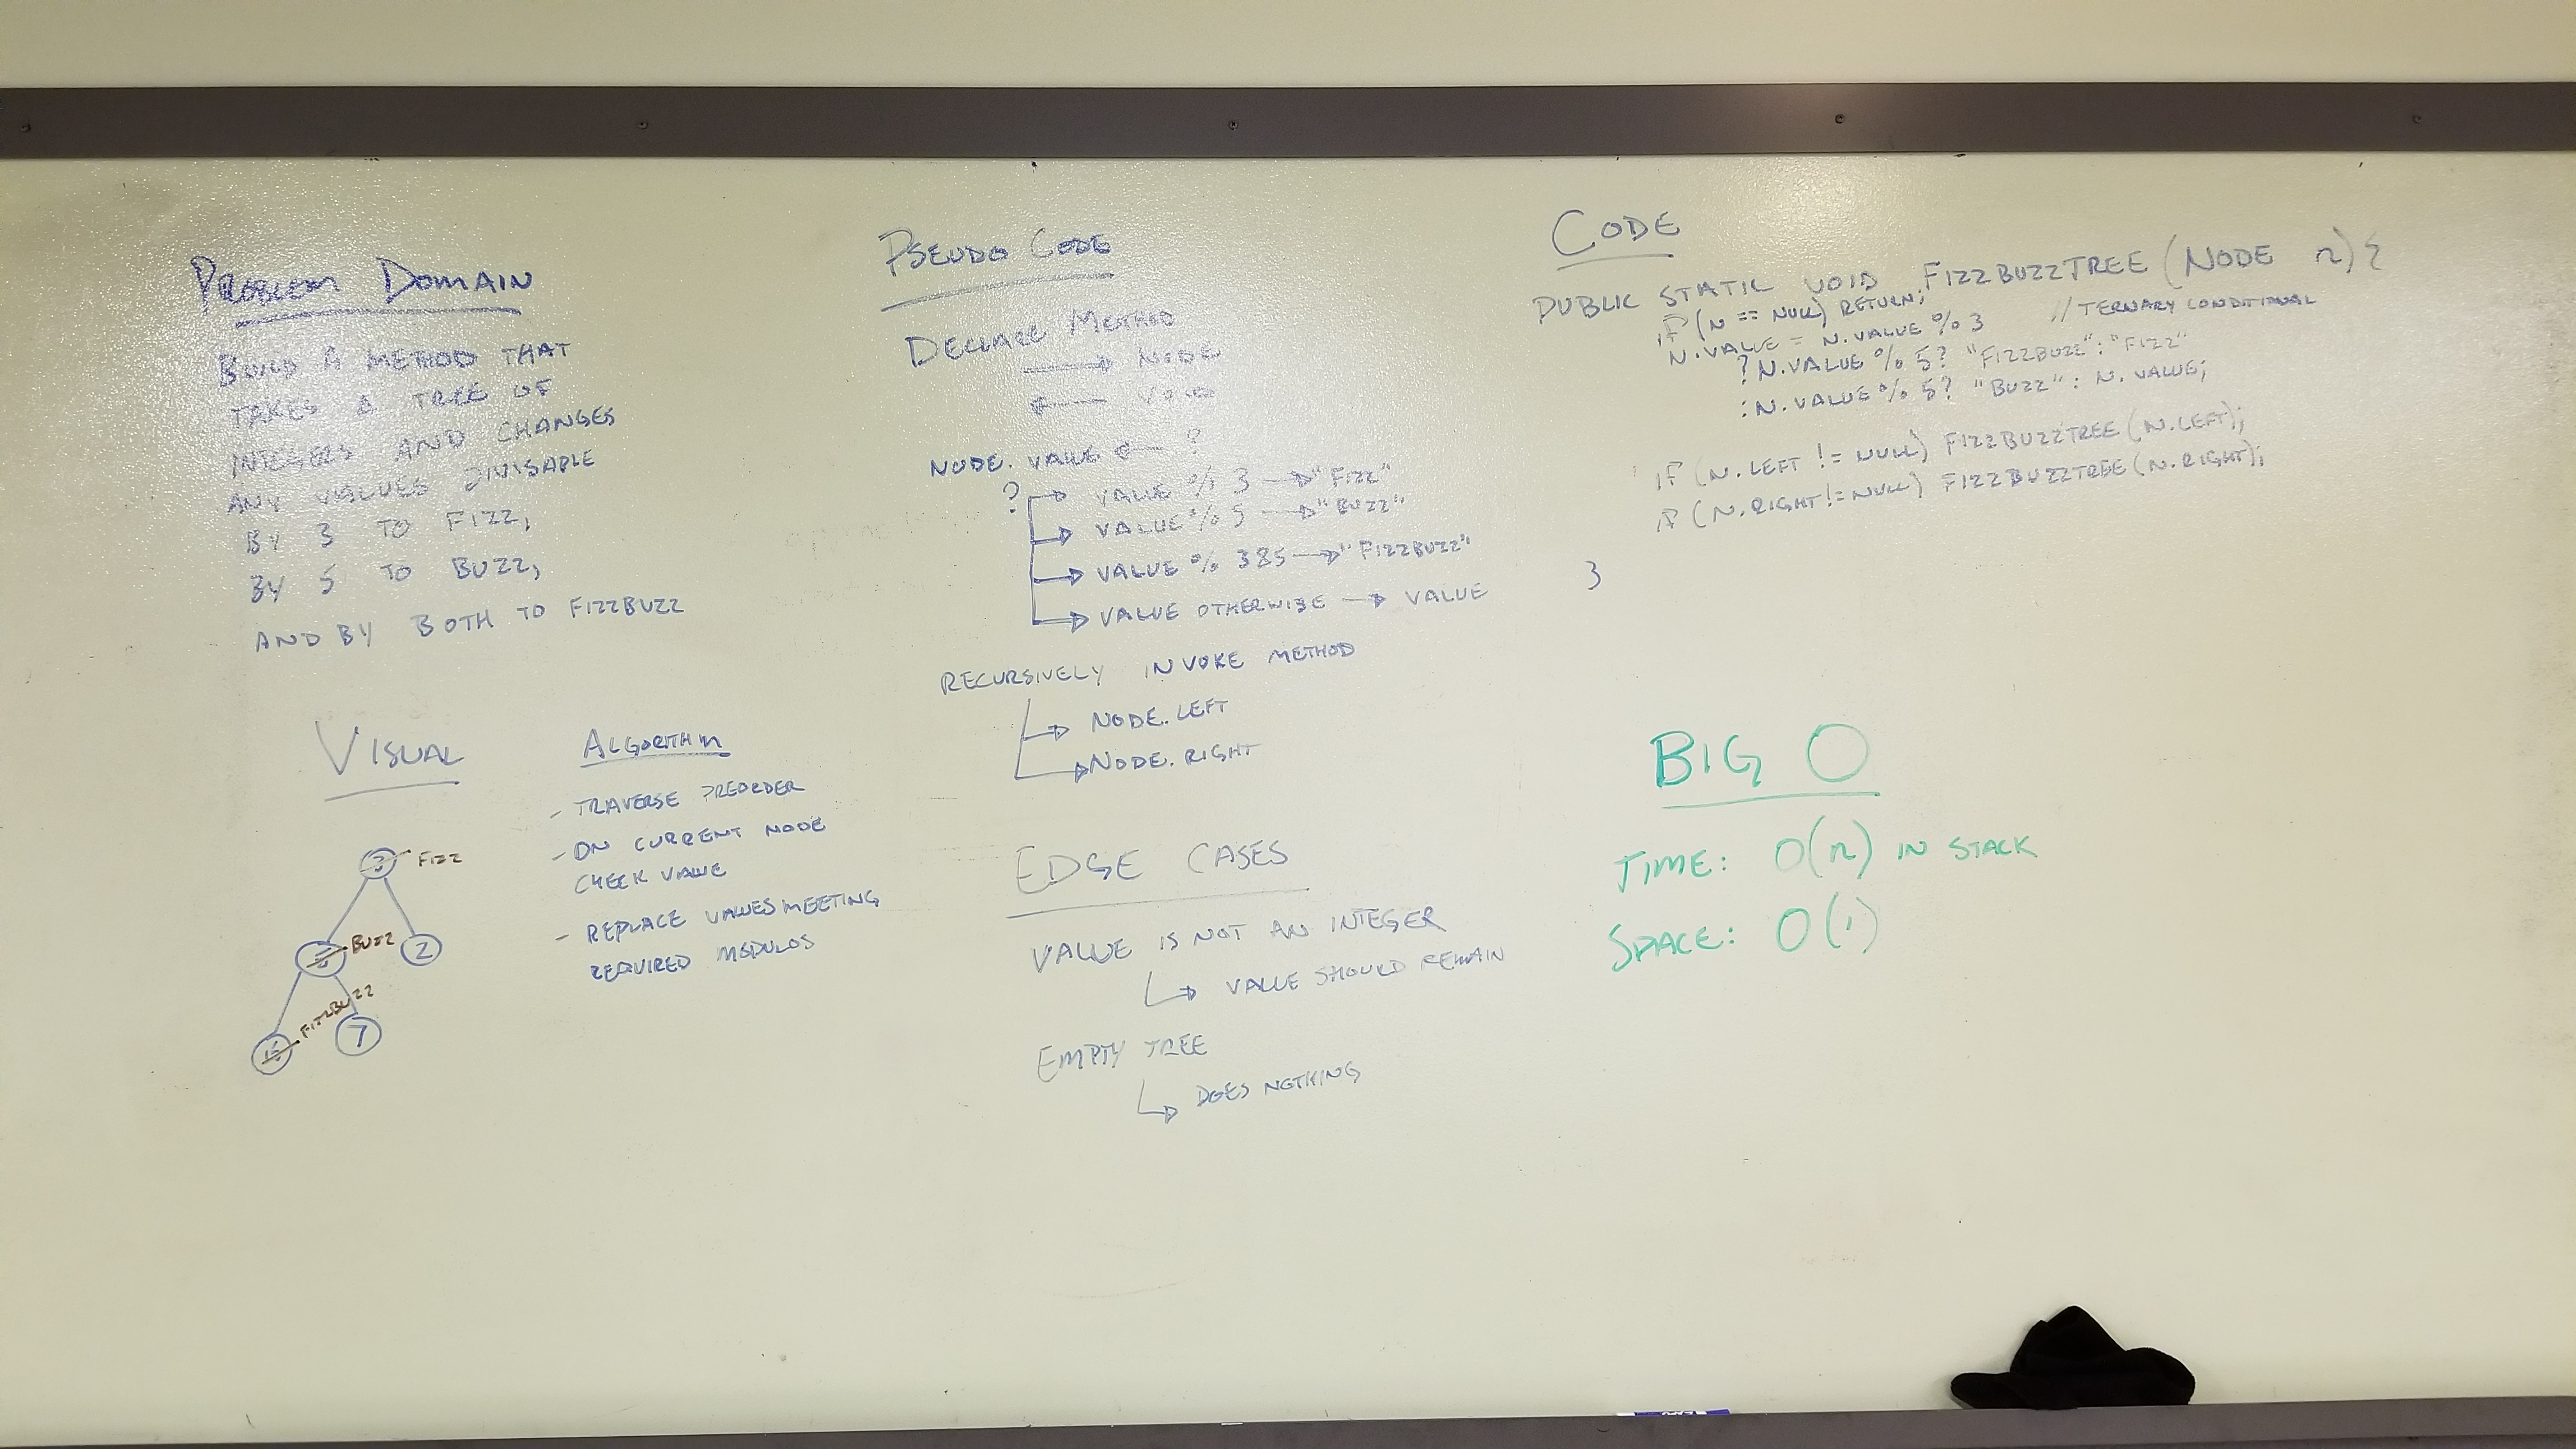 PROBLEM DOMAIN
BUILD A METHOD THAT
TAKES A TREE OF
INTEGERS AND CHANGES
ANY VALUES DIVISABLE
BY 3 TO FIZZ,
BY 5 TO BUZZ,
AND BY BOTH TO FIZZBUZZ
VISUAL
3 FIZZ
BUZZ 2
FIZZBUZZ
15 7
ALGORITHM
- TRAVERSE PREORDER
- ON CURRENT NODE
CHECK VALUE
- REPLACE VALUES MEETING
REQUIRED MODULOS
PSEUDO CODE
DECLARE METHOD
→ NODE
← VOID
NODE.VALUE ← ?
? → VALUE % 3 → "FIZZ"
→ VALUE % 5 → "BUZZ"
→ VALUE % 3&5 → "FIZZBUZZ"
→ VALUE OTHERWISE → VALUE
RECURSIVELY INVOKE METHOD
→ NODE.LEFT
→ NODE.RIGHT
EDGE CASES
VALUE IS NOT AN INTEGER
→ VALUE SHOULD REMAIN
EMPTY TREE
→ DOES NOTHING
CODE
PUBLIC STATIC VOID FIZZBUZZTREE (NODE n) {
if (N == NULL) RETURN;
N.VALUE = N.VALUE % 3 // TERNARY CONDITIONAL
? N.VALUE % 5? "FIZZBUZZ": "FIZZ"
: N.VALUE % 5? "BUZZ": N.VALUE;
if (N.LEFT != NULL) FIZZBUZZTREE (N.LEFT);
if (N.RIGHT != NULL) FIZZBUZZTREE (N.RIGHT);
}
BIG O
TIME: O(n) IN STACK
SPACE: O(1)